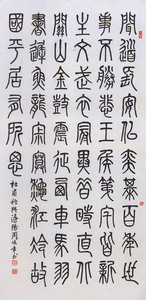 聞道長安似弈棋百年世
事不勝悲王侯第宅皆新
主文武衣冠異昔時直北
關山金鼓震征西車馬羽
書遲魚龍寂寞秋江冷故
國平居有所思
杜甫秋興 洛陽周書